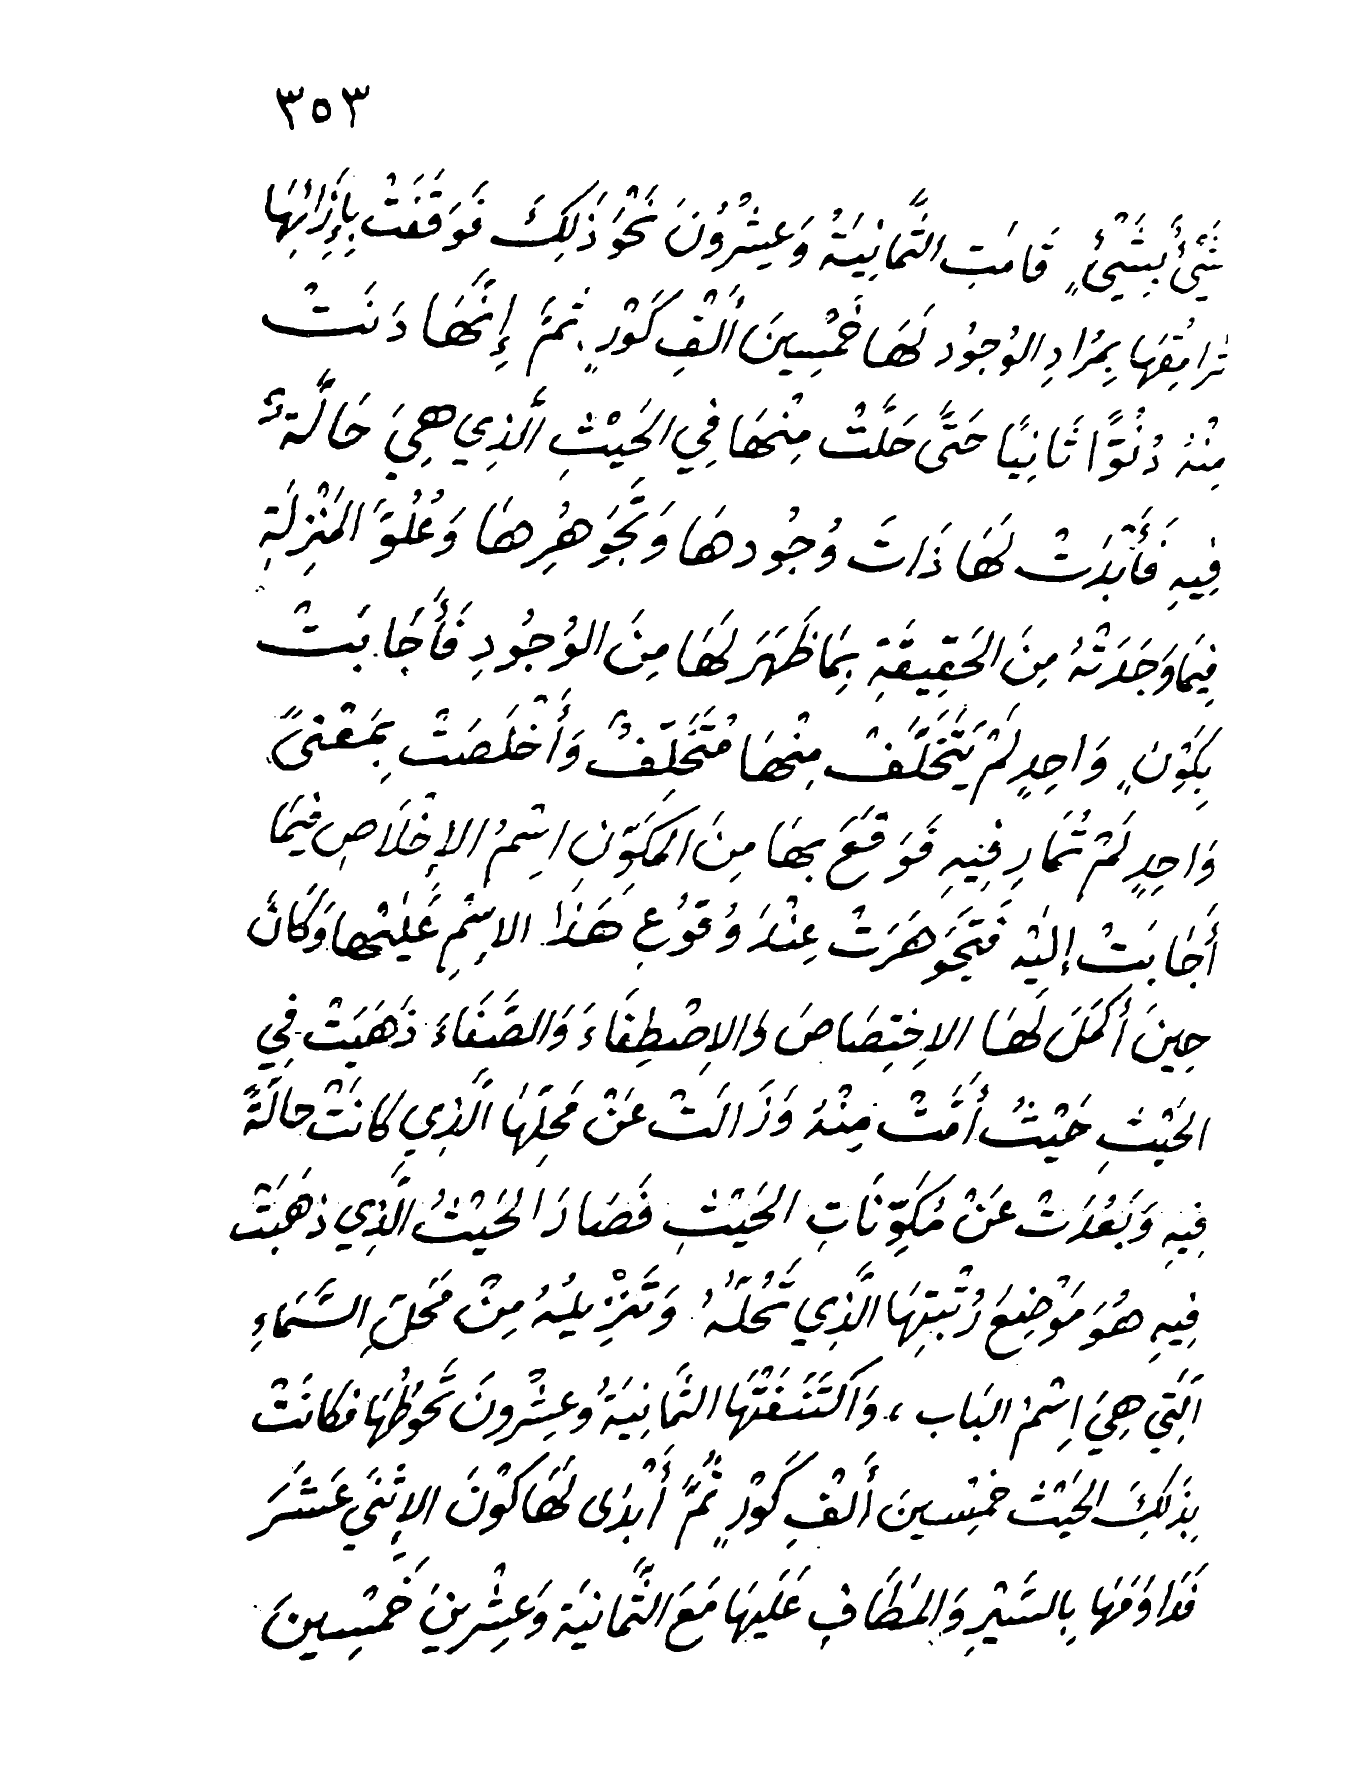 ٣٥٣
شَيْئٌ بِشَيْئٍ قَامَتِ الثَّمَانِيَةُ وَعِشْرُونَ نَحْوَ ذَلِكَ فَوَقَفَتْ بِإِزَائِهَا
تُرَامِقُهَا بِمُرَادِ الوُجُودِ لَهَا خَمْسِينَ أَلْفِ كَوْرٍ، ثُمَّ إِنَّهَا دَنَتْ
مِنْهُ دُنُوًّا ثَانِيًا حَتَّى حَلَّتْ مِنْهَا فِي الحَيْثِ الَّذِي هِيَ حَالَّةٌ
فِيهِ فَأَبْدَتْ لَهَا ذَاتَ وُجُودِهَا وَتَجَوْهُرِهَا وَعُلُوَّ المَنْزِلَةِ
فِيمَا وَجَدَتْهُ مِنَ الحَقِيقَةِ بِمَا ظَهَرَ لَهَا مِنَ الوُجُودِ فَأَجَابَتْ
بِكَوْنٍ وَاحِدٍ لَمْ يَتَخَلَّفْ مِنْهَا مُتَخَلِّفٌ وَأَخْلَصَتْ بِمَعْنىً
وَاحِدٍ لَمْ تُمَارِ فِيهِ فَوَقَعَ بِهَا مِنَ المَكَوِّنِ اسْمُ الإِخْلَاصِ فِيمَا
أَجَابَتْ إِلَيْهِ فَتَجَوْهَرَتْ عِنْدَ وُقُوعِ هَذَا الاِسْمِ عَلَيْهَا وَكَانَ
حِينَ أَكْمَلَ لَهَا الاِخْتِصَاصَ وَالاِصْطِفَاءَ وَالصَّفَاءَ ذَهَبَتْ فِي
الحَيْثِ حَيْثُ أَمَّتْ مِنْهُ وَزَالَتْ عَنْ مَحِلِّهَا الَّذِي كَانَتْ حَالَّةً
فِيهِ وَبَعُدَتْ عَنْ مُكَوِّنَاتِ الحَيْثِ فَصَارَ الحَيْثُ الَّذِي ذَهَبَتْ
فِيهِ هُوَ مَوْضِعَ رُتْبَتِهَا الَّذِي تَحُلُّهُ وَتَنْزِيلُهُ مِنْ مَحَلِّ السَّمَاءِ
الَّتِي هِيَ اِسْمُ البَابِ، وَاكْتَنَفَتْهَا الثَّمَانِيَةُ وَعِشْرُونَ تَحُوطُهَا فَكَانَتْ
بِذَلِكَ الحَيْثِ خَمْسِينَ أَلْفِ كَوْرٍ ثُمَّ أَبْدَى لَهَا كَوْنَ الاِثْنَي عَشَرَ
فَدَاوَمَهَا بِالسَّيْرِ وَالمَطَافِ عَلَيهَا مَعَ الثَّمَانِيَةِ وَعِشْرِينَ خَمْسِينَ